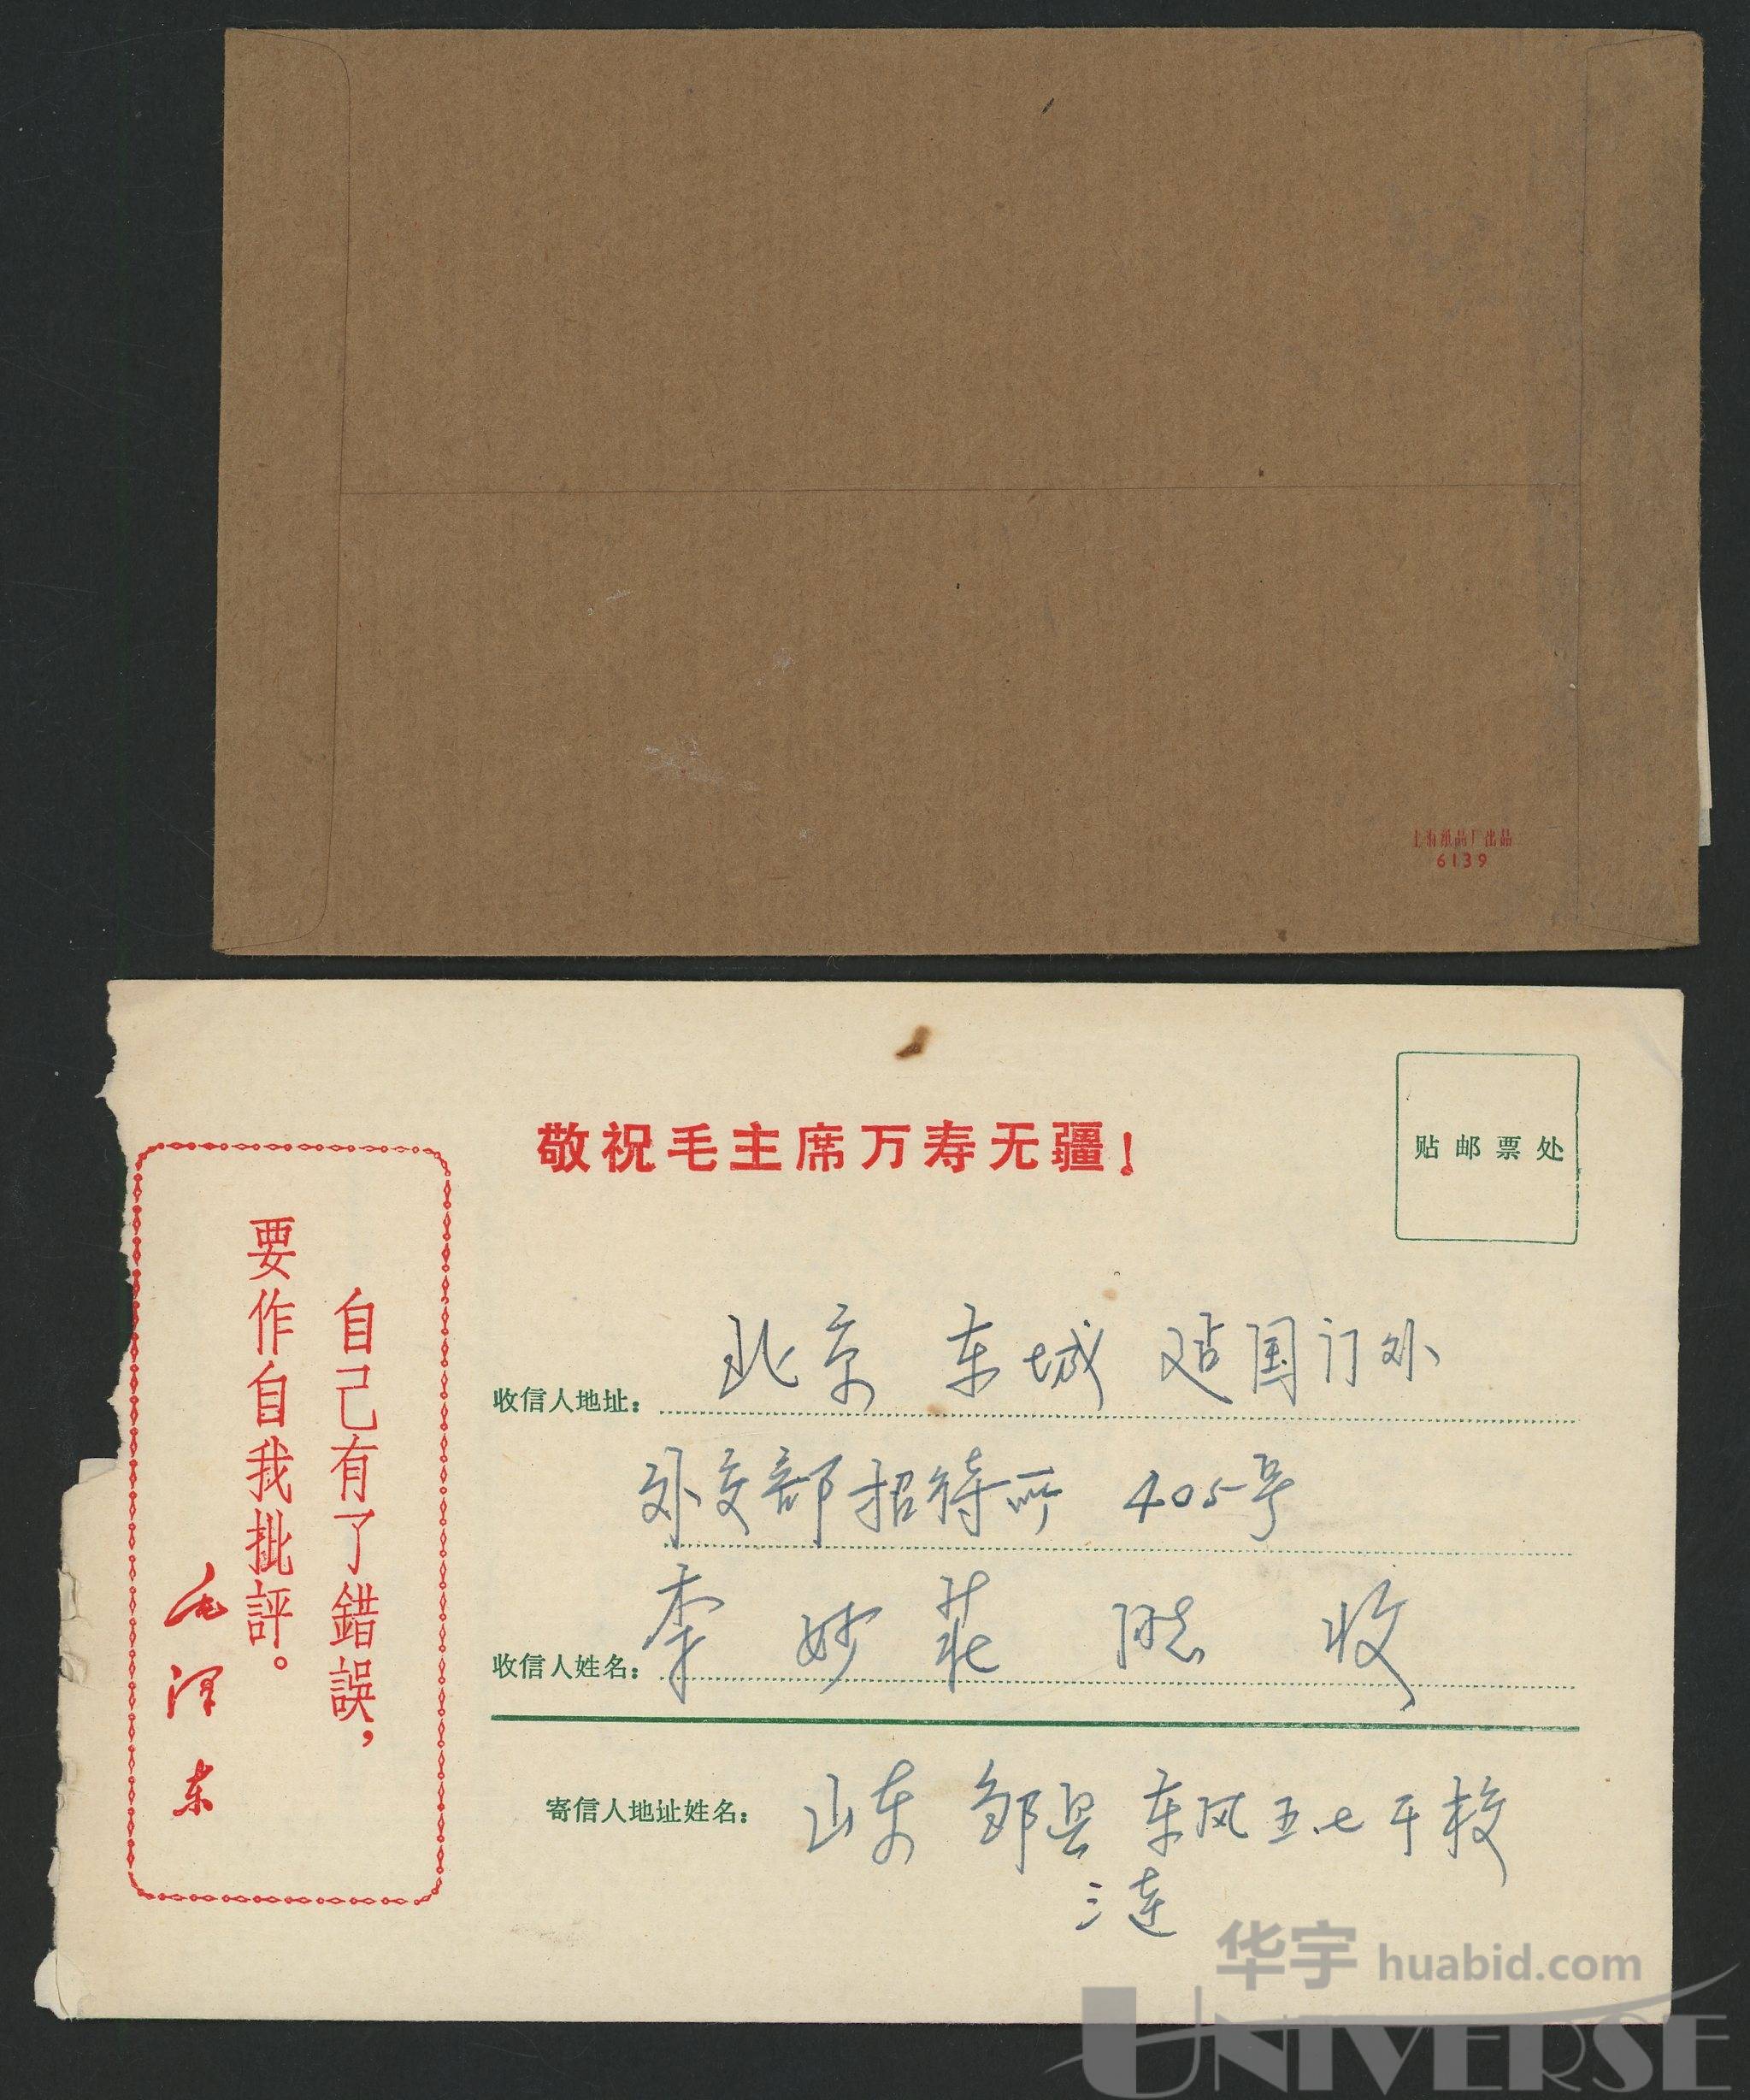 上海纸品厂出品
6139
敬祝毛主席万寿无疆!
贴邮票处
自己有了錯誤,
要作自我批評。
毛泽东
收信人地址: 北京 东城 建国门外
外交部招待所 405号
收信人姓名: 李妙 收
寄信人地址姓名: 山东 邹县 东风五.七干校
三连
华宇 huabid.com
UNIVERSE